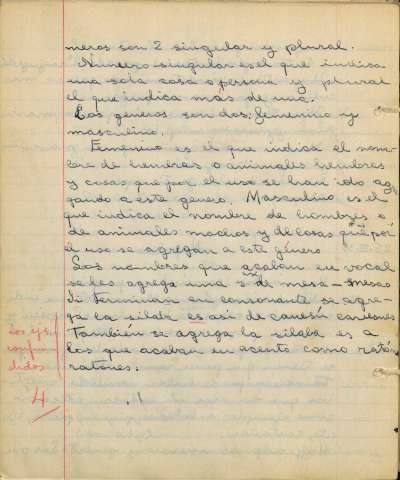 meros son 2 singular y plural.
Número singular es el que indica
una sola cosa o persona y plural
el que indica mas de una.
Los generos son dos: femenino y
masculino.
Femenino es el que indica el nom-
bre de hembras o animales hembras
y cosas que por el uso se han ido agre
gando a este genero. Masculino es el
que indica el nombre de hombres o
de animales machos y de cosas que por
el uso se agregan a este género
Los nombres que acaban en vocal
se les agrega una s de mesa - mesas
Si terminan en consonante se agre-
ga la silaba es asi de canesú canesues
También se agrega la silaba es a
los que acaban en acento como ratón
ratones.
Los ej
conf
didos
4